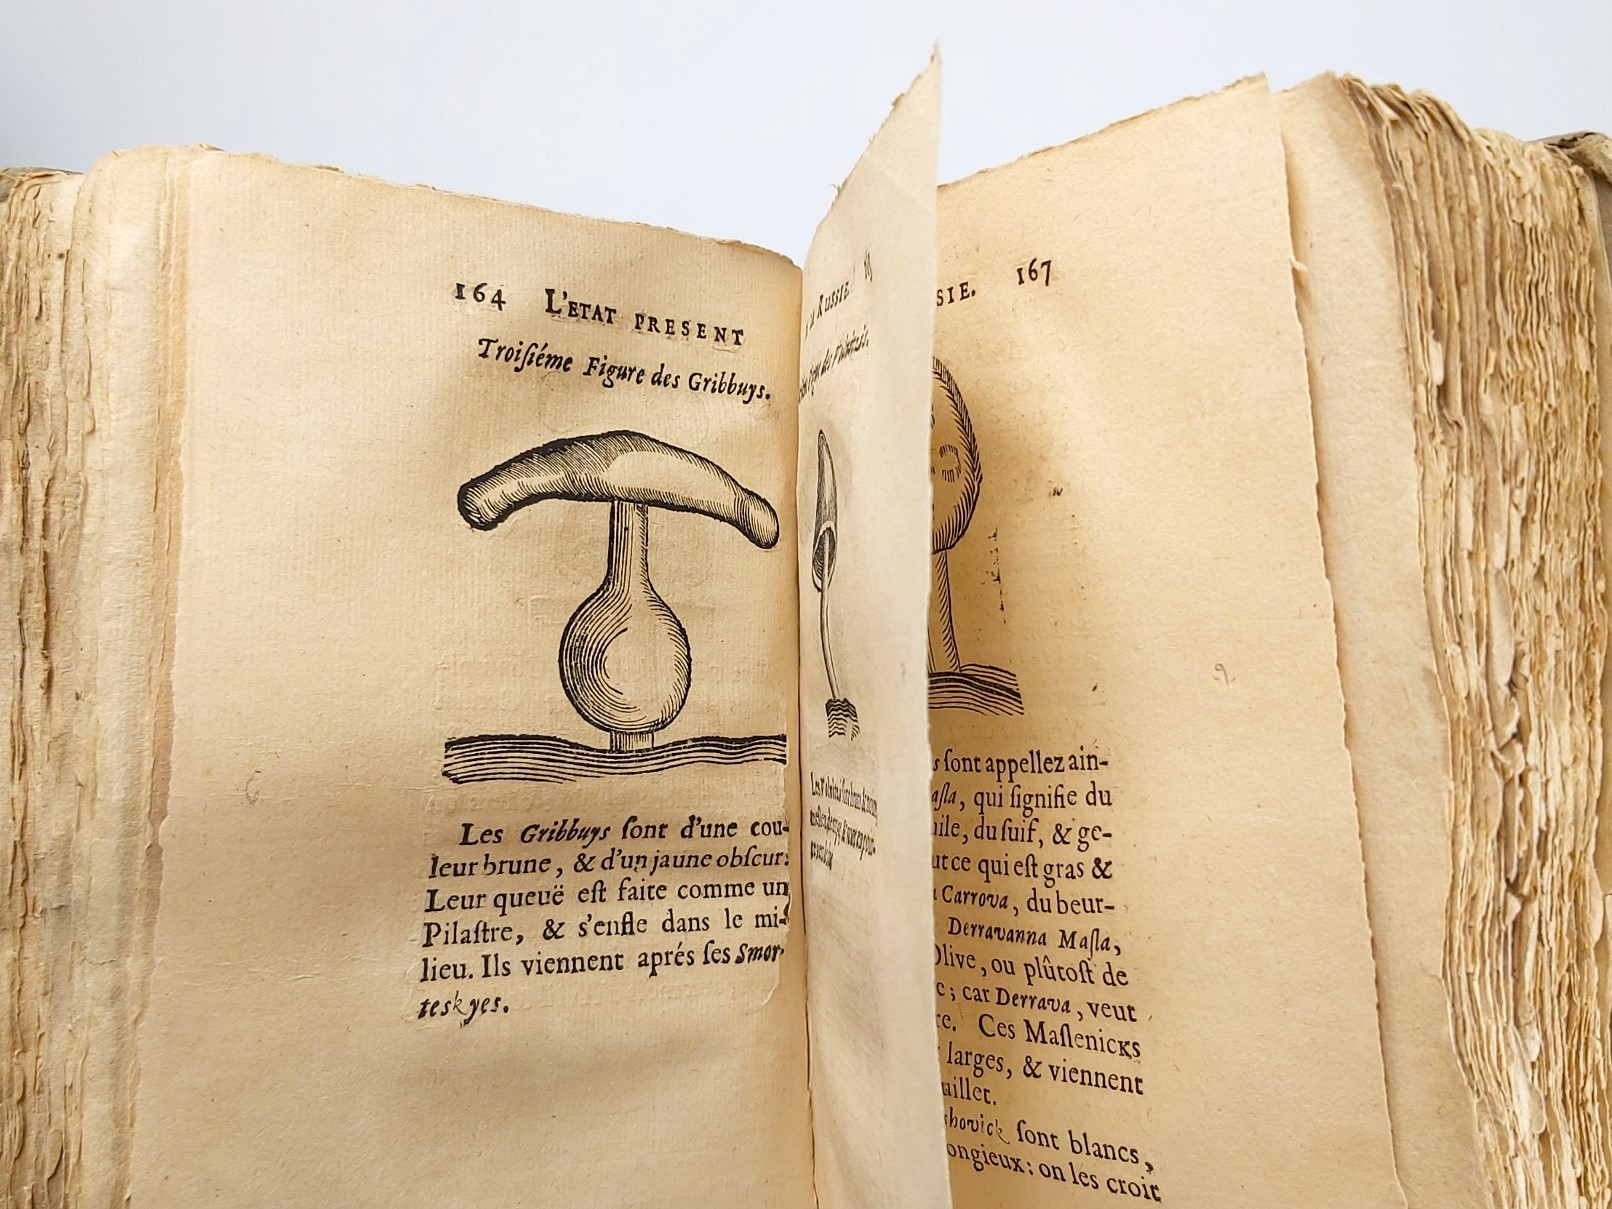 164 L'ETAT PRESENT
Troiſiéme Figure des Gribbuys.
Les Gribbuys ſont d'une cou-
leur brune, & d'un jaune obſcur:
Leur queuë eſt faite comme un
Pilaſtre, & s'enfle dans le mi-
lieu. Ils viennent aprés ſes Smor-
teskyes.
RUSSIE.
SIE. 167
s ſont appellez ain-
aſla, qui ſignifie du
uile, du ſuif, & ge-
ut ce qui eſt gras &
Carrova, du beur-
Derravanna Maſla,
Olive, ou plûtoſt de
c; car Derrava, veut
re. Ces Maſlenicks
larges, & viennent
uillet.
shovick ſont blancs,
ongieux: on les croit